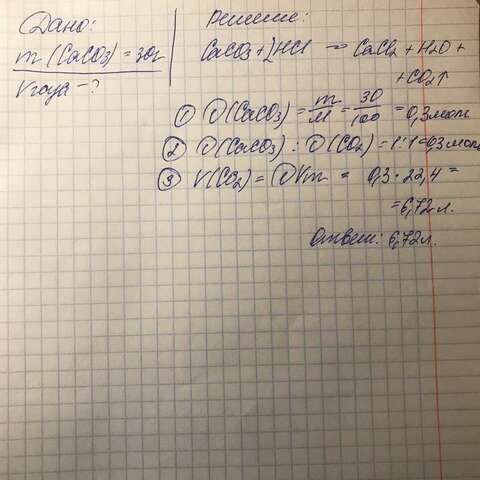 Дано:
m (CaCO3) = 30г
Vгаза - ?
Решение:
CaCO3 + 2HCl → CaCl2 + H2O +
+ CO2↑
① ν(CaCO3) = m/M = 30/100 = 0,3 моль
② ν(CaCO3) : ν(CO2) = 1:1 = 0,3 моль
③ V(CO2) = νVm = 0,3 · 22,4 =
= 6,72 л.
Ответ: 6,72 л.